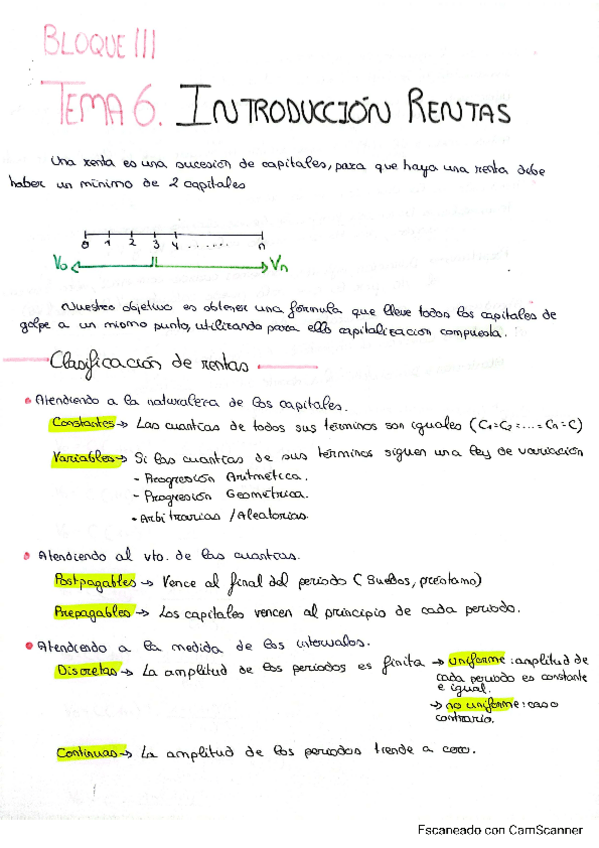 BLOQUE III
TEMA 6. INTRODUCCIÓN RENTAS
Una renta es una sucesión de capitales, para que haya una renta debe
haber un mínimo de 2 capitales
0 1 2 3 4 ...... n
Vo Vn
Nuestro objetivo es obtener una formula que lleve todos los capitales de
golpe a un mismo punto, utilizando para ello capitalizacion compuesta.
Clasificación de rentas
• Atendiendo a la naturaleza de los capitales.
Constantes → Las cuantías de todos sus términos son iguales (C1=C2=...=Cn=C)
Variables → Si las cuantías de sus términos siguen una ley de variación
- Progresión Aritmética.
- Progresión Geométrica.
- Arbitrarias / Aleatorias.
• Atendiendo al vto. de las cuantías.
Postpagables → Vence al final del periodo (Sueldos, préstamo)
Prepagables → Los capitales vencen al principio de cada periodo.
• Atendiendo a la medida de los intervalos.
Discretas → La amplitud de los periodos es finita → uniforme: amplitud de
cada periodo es constante
e igual.
→ no uniforme: caso
contrario.
Continuas → La amplitud de los periodos tiende a cero.
Escaneado con CamScanner